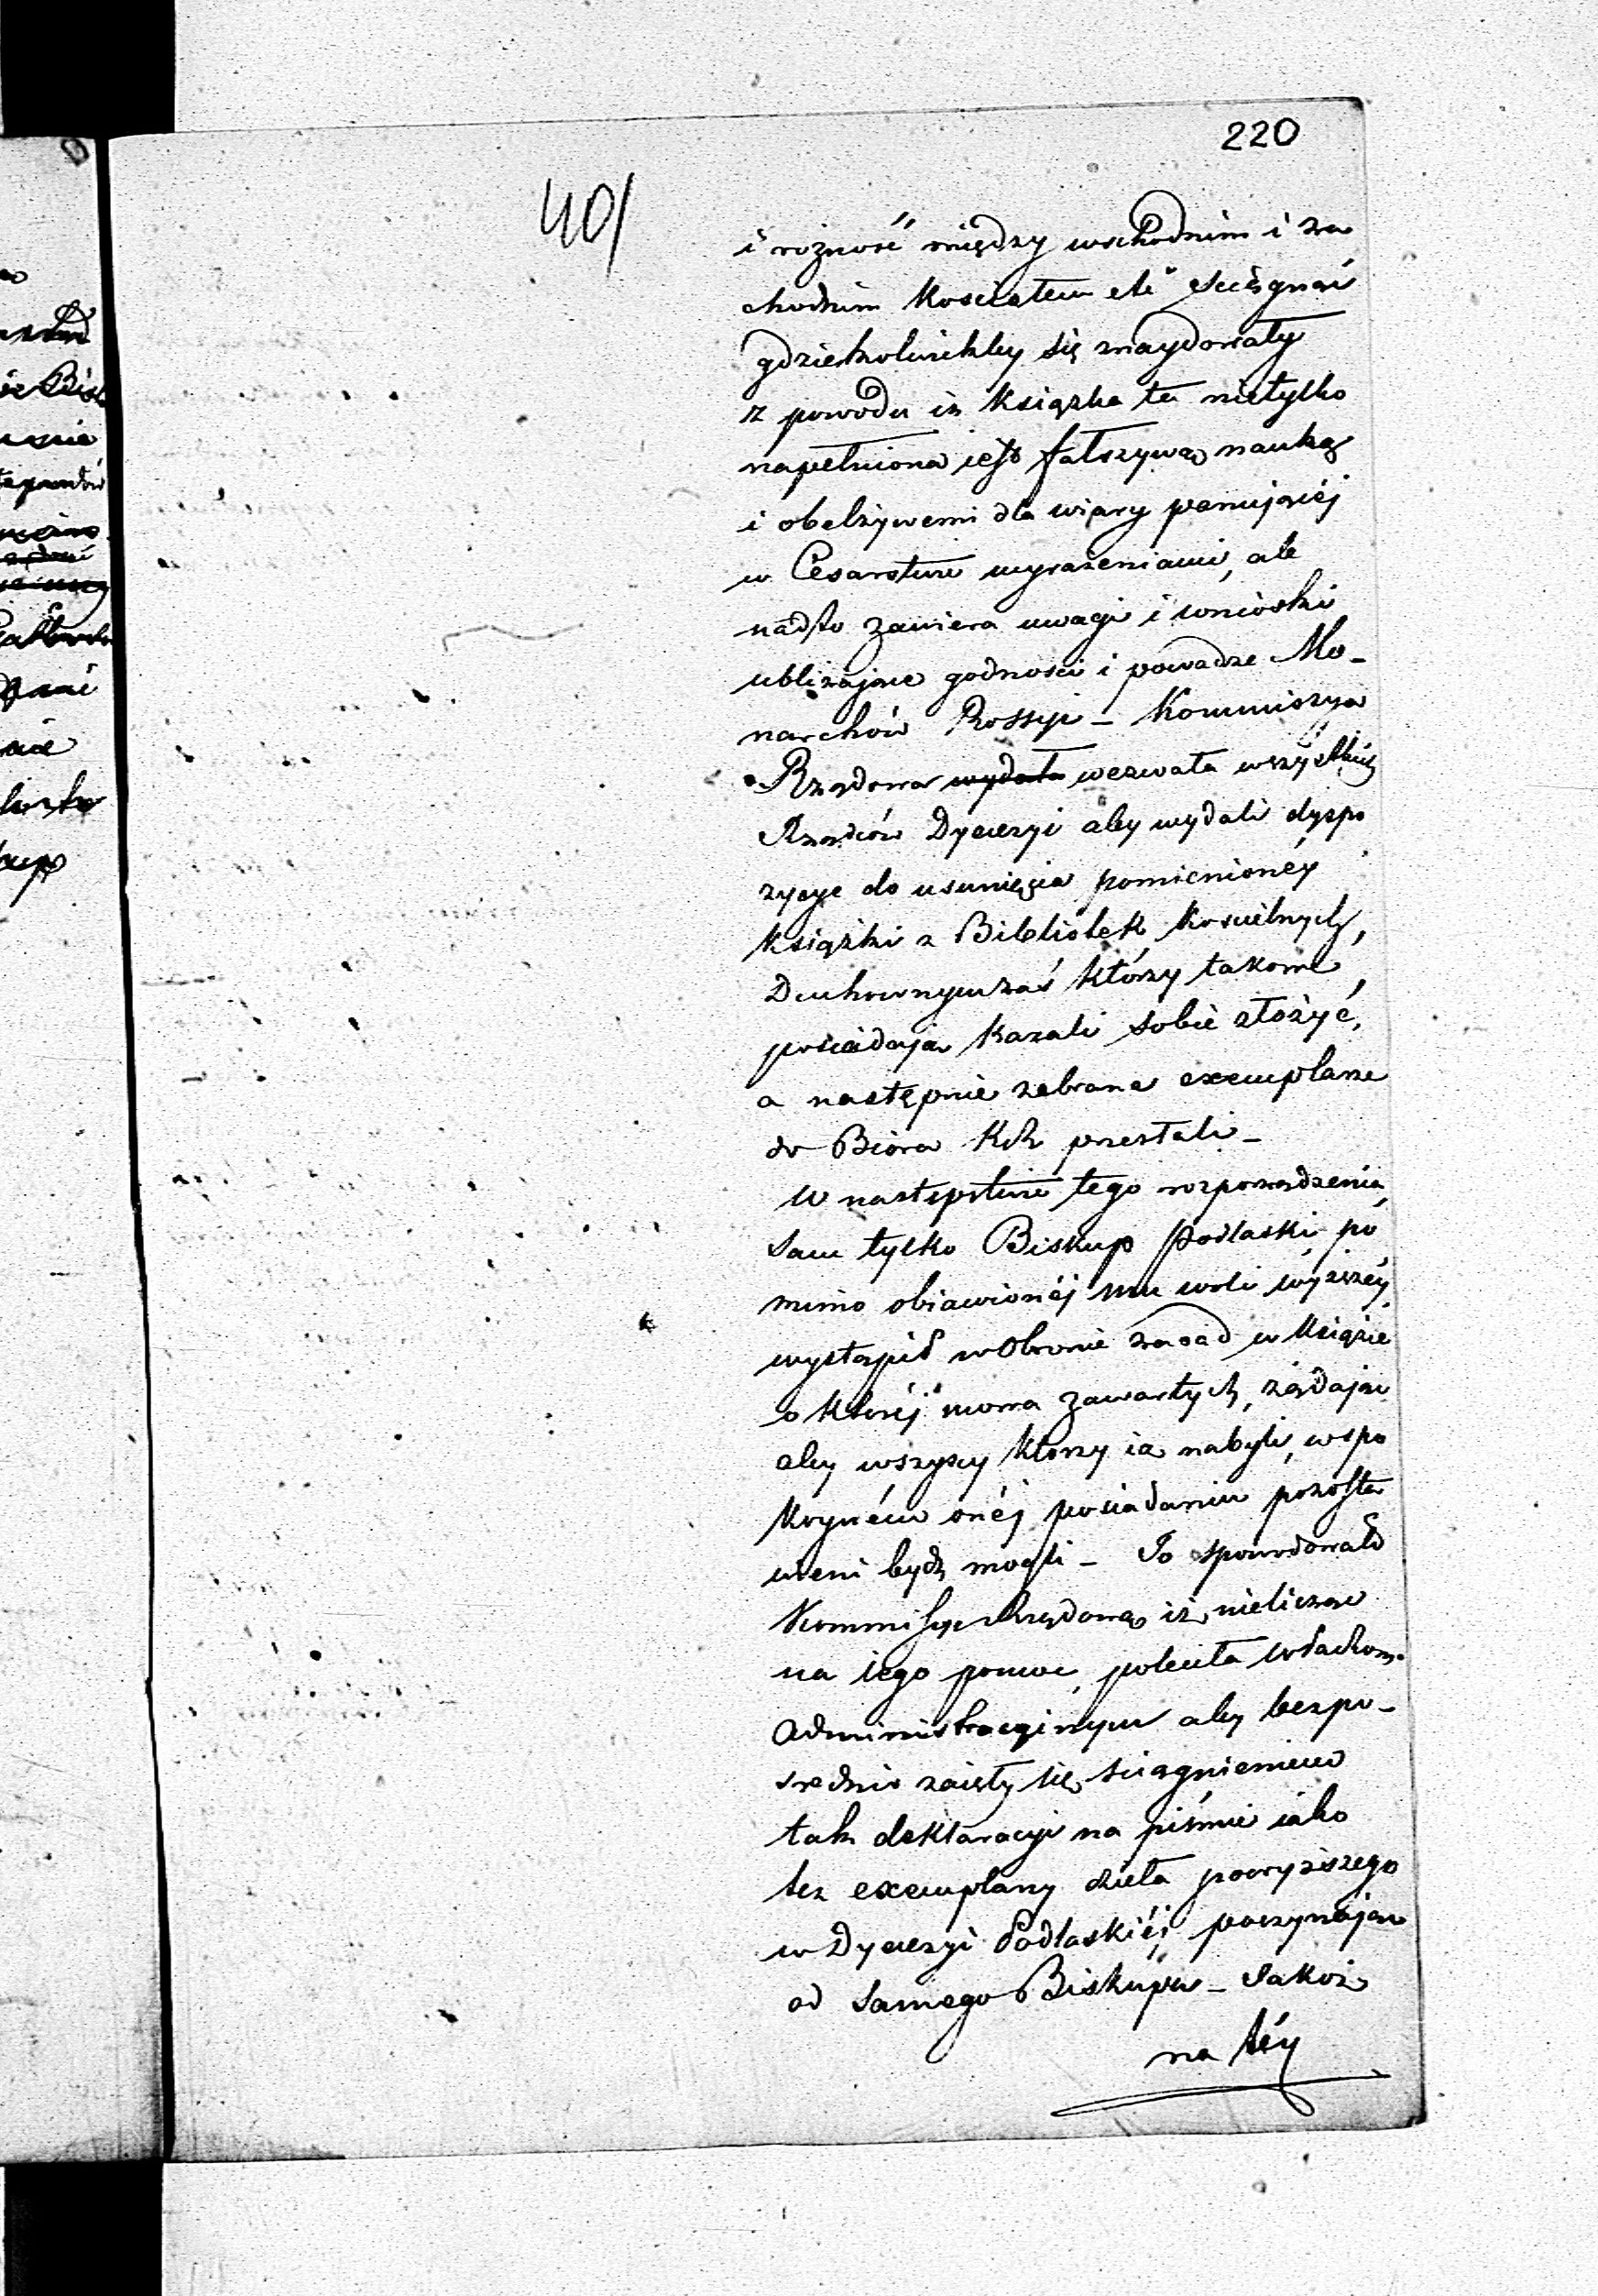 220
401
i różność między wschodnim i za
chodnim Kościołem etc" ściągnąć
gdziekolwiekby się znaydowały
z powodu iż Książka ta nietylko
napełniona iest fałszywą nauką
i obelżywemi dla wiary panującéj
w Cesarstwie wyrażeniami, ale
nadto zawiera uwagi i wnioski
ubliżające godności i powadze Mo-
narchów Rossyi - Kommissya
Rządowa wydała wezwała wszystkich
Rządców Dyecezyi aby wydali dyspo
zycye do usunięcia pomienionéy
Książki z Bibliotek Kościelnych,
Duchownym zaś którzy takowe
posiadają kazali sobie złożyć,
a następnie zebrane exemplarze
do Bióra KRz przesłali -
W następstwie tego rozporządzenia
sam tylko Biskup Podlaski po
mimo obiawionéj mu woli wyższéy
wystąpił w Obronie zasad w Księdze
o któréj mowa zawartych, żądając
aby wszyscy którzy ią nabyli, w spo
koyném onéj posiadaniu pozosta
wieni bydź mogli - To spowodowało
Kommissyę Rządową iż nielicząc
na iego pomoc, poleciła Władzom
Administracyinym aby bezpo-
srednio zaięły się ściągnieniem
tak deklaracyi na piśmie iako
też exemplarzy dzieła powyższego
w Dyecezyi Podlaskiéj poczynając
od samego Biskupa - Jakoż
na téy